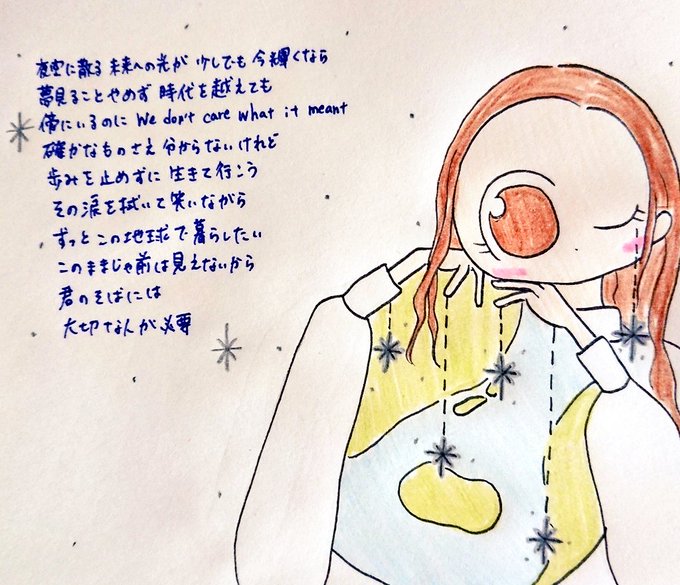 夜空に散る 未来への光が 少しでも 今輝くなら
夢見ることやめず 時代を越えても
傍にいるのに We don't care what it meant
確かなものさえ 分からないけれど
歩みを止めずに 生きて行こう
その涙を拭いて 笑いながら
ずっと この地球で 暮らしたい
このままじゃ前は見えないから
君のそばには
大切な人が必要